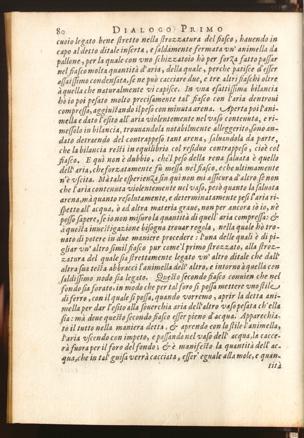 80 DIALOGO PRIMO
cuoio legato bene stretto nella strozzatura del fiasco, hauendo in
capo al detto ditale inserta, e saldamente fermata vn'animella da
pallone, per la quale con vno schizzatoio hò per forza fatto passar
nel fiasco molta quantità d'aria, della quale, perche patisce d'esser
assaissimo condensata, se ne può cacciare due, e tre altri fiaschi oltre
à quella che naturalmente vi capisce. In vna esattissima bilancia
hò io poi pesato molto precisamente tal fiasco con l'aria dentroui
compressa, aggiustando il peso con minuta arena. Aperta poi l'ani-
mella e dato l'esito all'aria violentemente nel vaso contenuta, e ri-
messolo in bilancia, trouandolo notabilmente alleggerito, sono an-
dato detraendo del contrappeso tant'arena, saluandola da parte,
che la bilancia resti in equilibrio col residuo contrappeso, cioè col
fiasco. E quì non è dubbio, che'l peso della rena saluata è quello
dell'aria, che forzatamente fù messa nel fiasco, e che vltimamente
n'è vscita. Mà tale esperienza sin quì non mi assicura d'altro, se non
che l'aria contenuta violentemente nel vaso, pesò quanto la saluata
arena, mà quanto resolutamente, e determinatamente pesi l'aria ri-
spetto all'acqua, ò ad altra materia graue, non per ancora io sò, nè
posso sapere, se io non misuro la quantità di quell'aria compressa: &
à questa inuestigazione bisogna trouar regola, nella quale hò tro-
uato di potere in due maniere procedere: l'vna delle quali è di pi-
gliar vn'altro simil fiasco pur come'l primo strozzato, alla stroz-
zatura del quale sia strettamente legato vn'altro ditale che dall'
altra sua testa abbracci l'animella dell'altro, e intorno à quella con
saldissimo nodo sia legato. Questo secondo fiasco conuien che nel
fondo sia forato, in modo che per tal foro si possa mettere vno stile
di ferro, con il quale si possa, quando vorremo, aprir la detta ani-
mella per dar l'esito alla souerchia aria dell'altro vaso pesata ch'ella
sia: mà deue questo secondo fiasco esser pieno d'acqua. Apparecchia-
to il tutto nella maniera detta, & aprendo con lo stile l'animella,
l'aria vscendo con impeto, e passando nel vaso dell'acqua, la cacce-
rà fuora per il foro del fondo; & è manifesto la quantità dell'ac-
qua, che in tal guisa verrà cacciata, esser'eguale alla mole, e quan-
tità